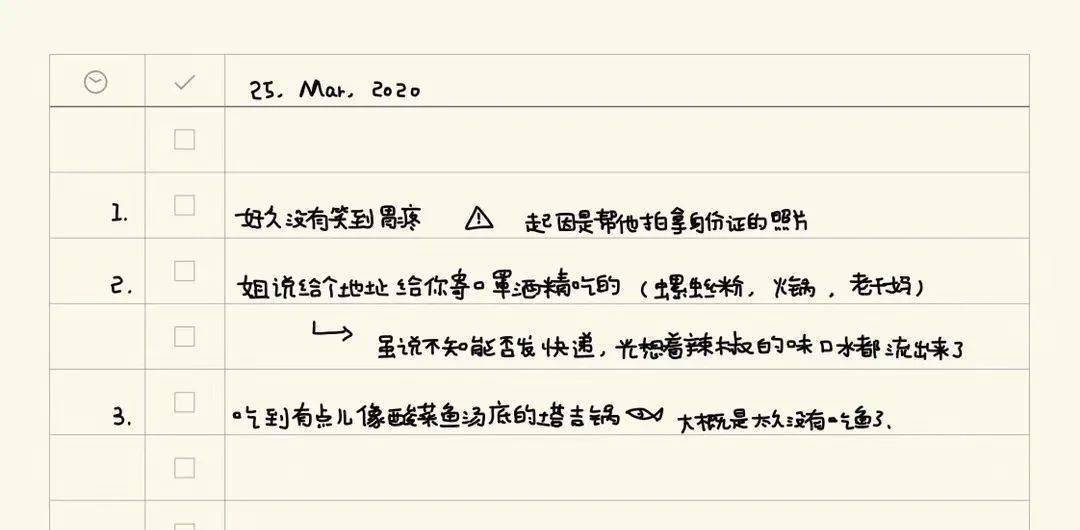 25. Mar. 2020
1. 好久没有笑到胃疼 ⚠ 起因是帮他拍拿身份证的照片
2. 姐说给个地址给你寄口罩酒精吃的（螺丝粉，火锅，老干妈）
虽说不知能否发快递，光想着辣椒的味口水都流出来了
3. 吃到有点儿像酸菜鱼汤底的塔吉锅 大概是太久没有吃鱼了.